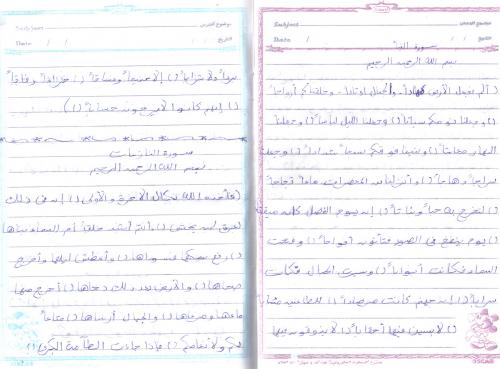 Subject: موضوع الدرس
Date: / / التاريخ
سورة النبأ
بسم الله الرحمن الرحيم
() ألم نجعل الأرض مهادا () والجبال أوتادا () وخلقناكم أزواجاً
() وجعلنا نومكم سباتاً () وجعلنا الليل لباساً () وجعلنا
النهار معاشاً () وبنينا فوقكم سبعاً شداداً () وجعلنا
سراجاً وهاجاً () وأنزلنا من المعصرات ماءً ثجاجاً
() لنخرج به حباً ونباتاً () إن يوم الفصل كان ميقاتا
() يوم ينفخ في الصور فتأتون أفواجاً () وفتحت
السماء فكانت أبوابا () وسيرت الجبال فكانت
سراباً () إن جهنم كانت مرصاداً () للطاغين مئابا
() لابسين فيها أحقاباً () لا يذوقون فيها
Subject: موضوع الدرس
Date: / / التاريخ
برداً ولا شراباً () إلا حميماً وغساقاً () جزاءً وفاقاً
() إنهم كانوا لا يرجون حساباً ()
سورة النازعات
بسم الله الرحمن الرحيم
فأخذه الله نكال الآخرة والأولى () إن في ذلك
لعبرة لمن يخشى () أأنتم أشد خلقاً أم السماء بناها
() رفع سمكها فسواها () وأغطش ليلها وأخرج
ضحاها () والأرض بعد ذلك دحاها () أخرج منها
ماءها ومرعاها () والجبال أرساها () متاعاً
لكم ولأنعامكم () فإذا جاءت الطامة الكبرى ()